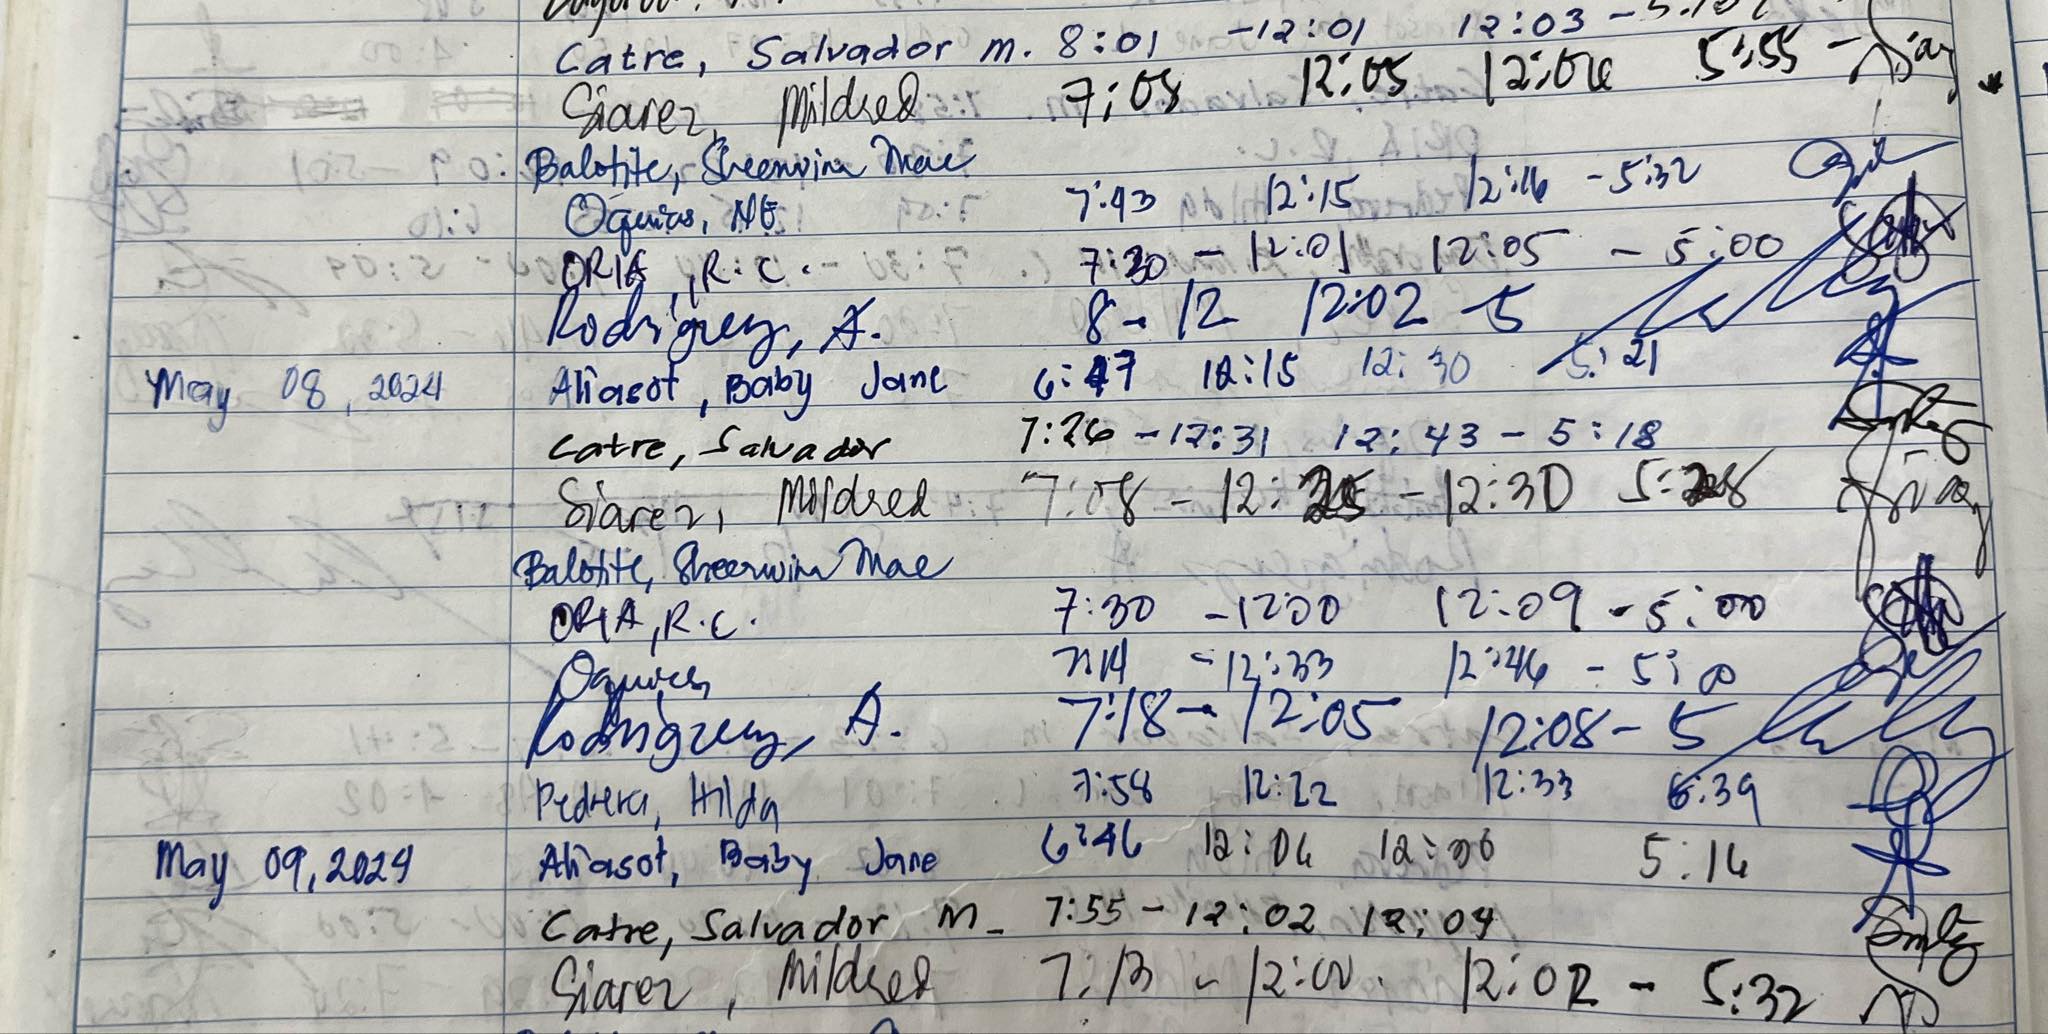 Catre, Salvador m. 8:01 -12:01 12:03 -
Siarez, Mildred 7:08 12:05 12:06 5:55 -
Balotite, Sheenwina Mae
Oquias, 7:43 12:15 12:16 - 5:32
ORIA, R.C. 7:30 - 12:01 12:05 - 5:00
Rodriguez, A. 8 - 12 12:02 - 5
May 08, 2024 Aliasot, Baby Jane 6:47 12:15 12:30 5:21
Catre, Salvador 7:26 -12:31 12:43 - 5:18
Siarez, Mildred 7:08 - 12:25 - 12:30 5:28
Balotite, Sheerwina Mae
ORIA, R.C. 7:30 -12:00 12:09 - 5:00
7:14 - 12:33 12:46 -
Rodriguez, A. 7:18 - 12:05 12:08 - 5
Pedrera, Hilda 7:58 12:22 12:33 6:39
May 09, 2024 Aliasot, Baby Jane 6:46 12:06 5:16
Catre, Salvador M. 7:55 - 12:02 12:04
Siarez, Mildred 7:13 - 12:00. 12:02 - 5:32